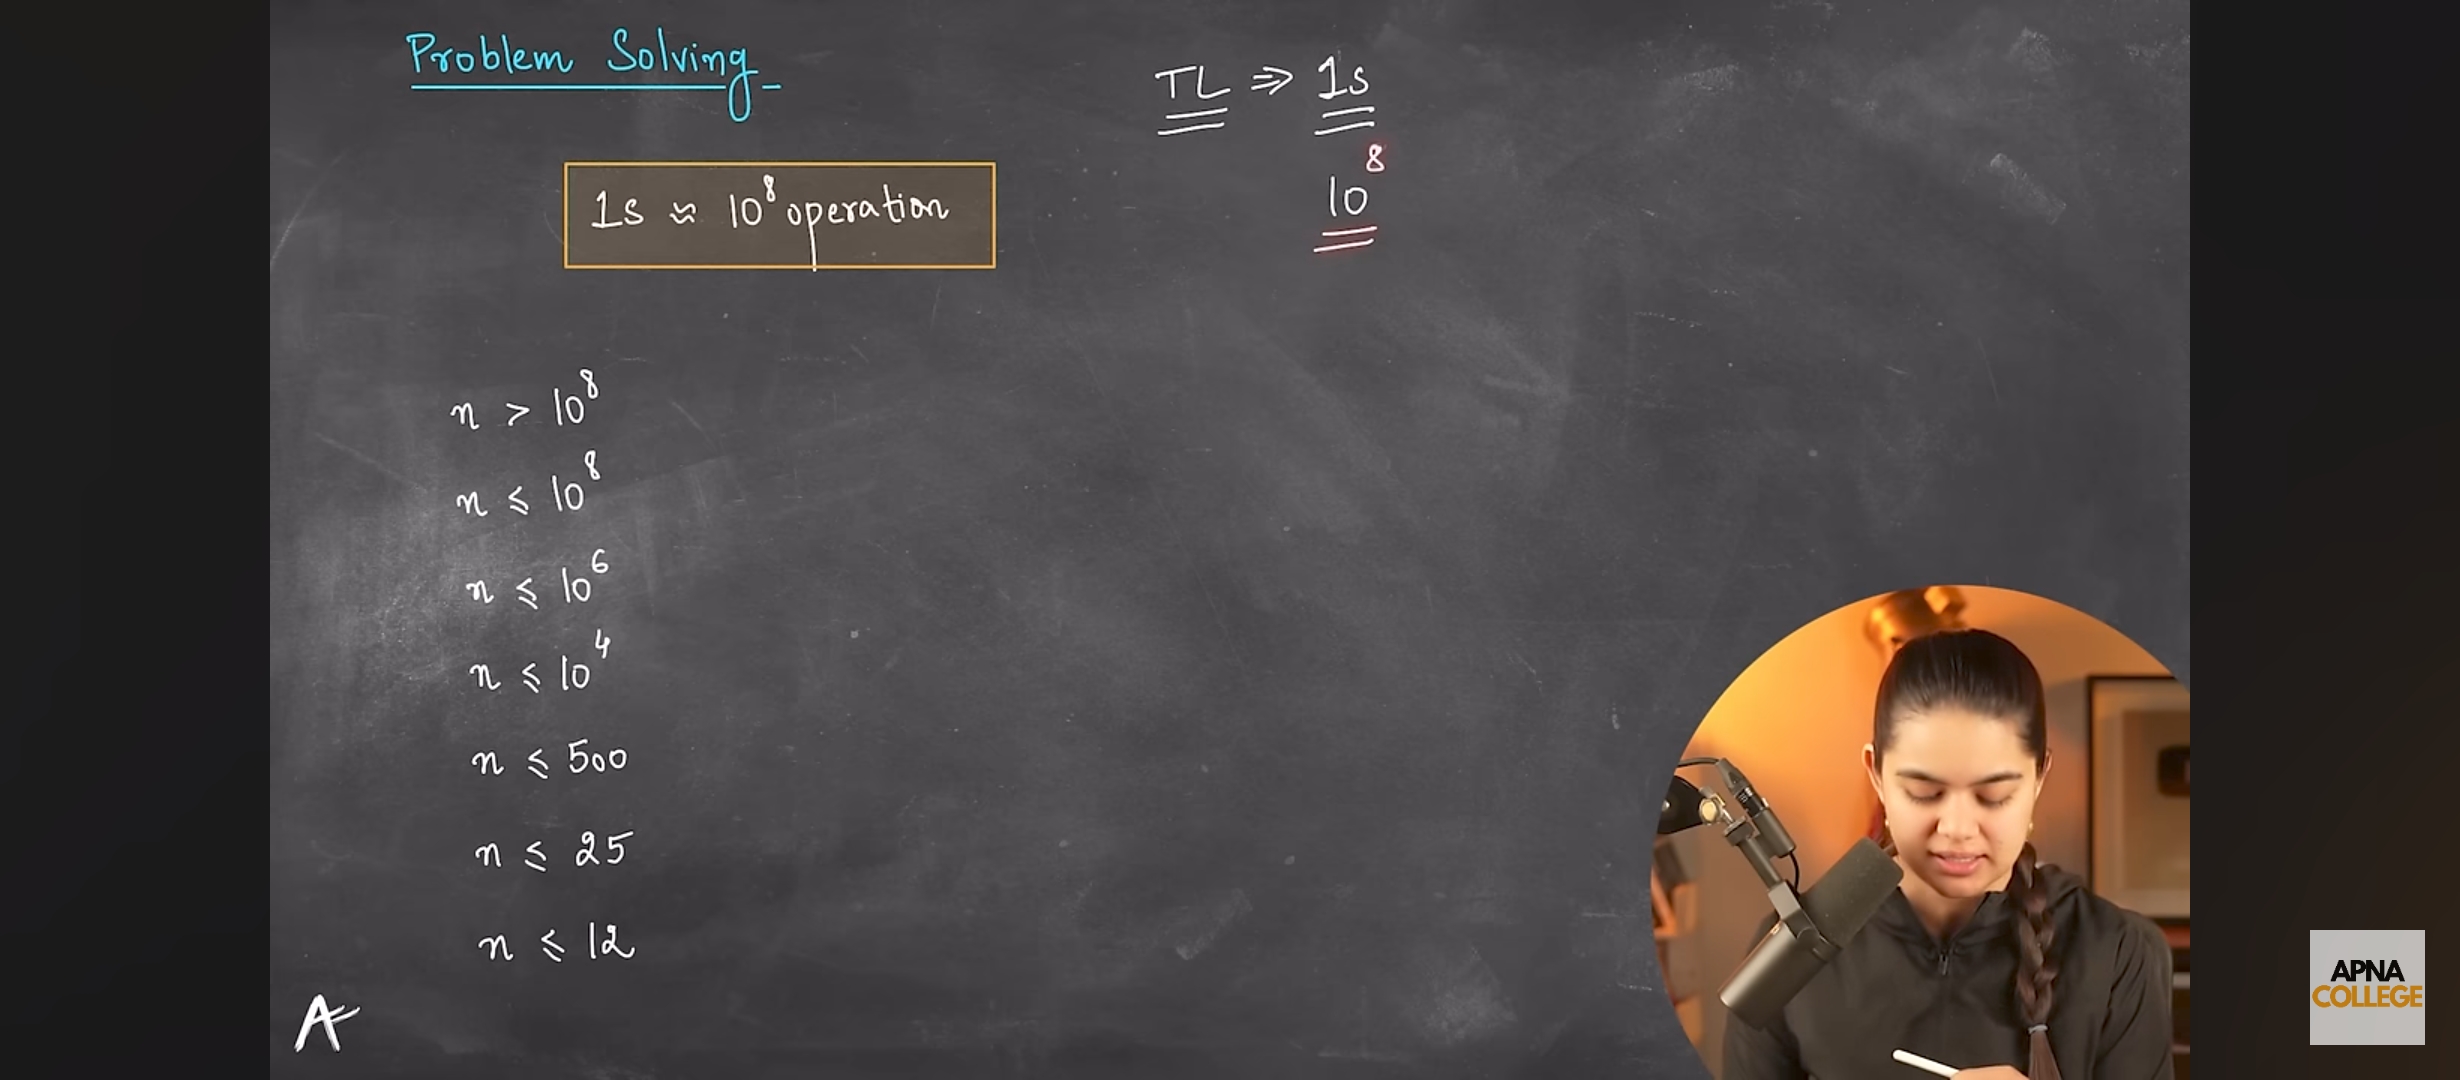 Problem Solving
TL ⇒ 1s
10⁸
1s ≈ 10⁸ operation
n > 10⁸
n ≤ 10⁸
n ≤ 10⁶
n ≤ 10⁴
n ≤ 500
n ≤ 25
n ≤ 12
A
APNA
COLLEGE